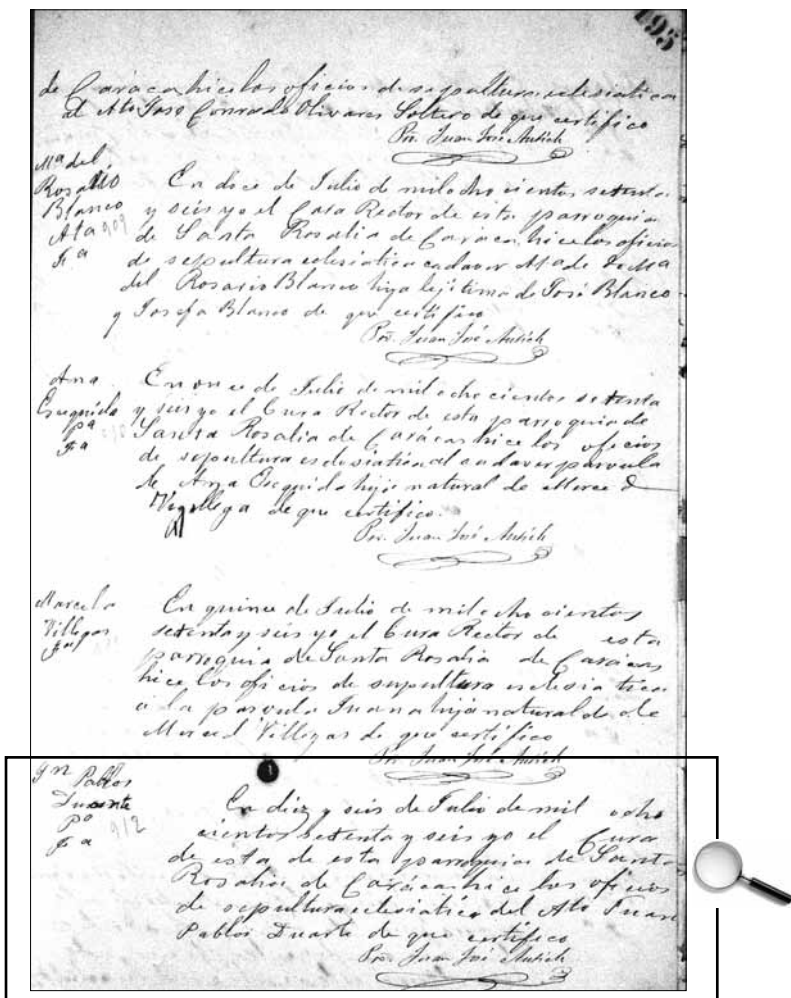 195
de Carácas hice los oficios de sepultura eclesiatica
al Ato Jose Conrado Olivares Soltero de que certifico
Pro. Juan José Autich
Ma del
Rosallo
Blanco
Ata 909
Fa
En doce de Julio de mil ochocientos setenta
y seis yo el Cura Rector de esta parroquia
de Santa Rosalia de Carácas hice los oficios
de sepultura eclesiatica cadaver Ata de Ma
del Rosario Blanco hija lejitima de José Blanco
y Josefa Blanco de que certifico
Pro. Juan José Autich
Ana
Esequida
Pa
Fa
En once de Julio de mil ochocientos setenta
y seis yo el Cura Rector de esta parroquia de
Santa Rosalia de Carácas hice los oficios
de sepultura al cadaver parvula
de Ana Esequida hija natural de Merce d
de que certifico.
Pro. Juan José Autich
Marcela
Villegas
En quince de Julio de mil ochocientos
setenta y seis yo el Cura Rector de esta
parroquia de Santa Rosalia de Carácas
hice los oficios de sepultura eclesiatica
a la parvula Juana hija natural de
Merced Villegas de que certifico
Pro. Juan José Autich
Jn Pablos
Duarte
Po
Fa
912
En diez y seis de Julio de mil ocho
cientos setenta y seis yo el Cura
de esta de esta parroquia de Santa
Rosalia de Carácas hice los oficios
de sepultura eclesiatica del Ato Juan
Pablos Duarte de que certifico
Pro. Juan José Autich